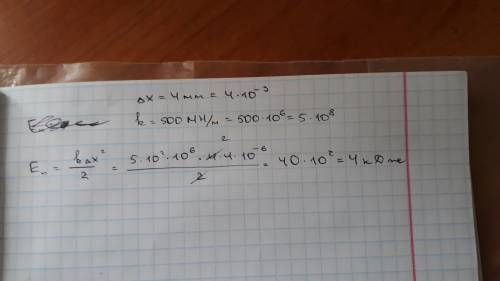 Δx = 4 mm = 4·10⁻³
k = 500 МН/м = 500·10⁶ = 5·10⁸
Eₙ = kΔx²/2 = 5·10²·10⁶·4·4·10⁻⁶/2 = 40·10² = 4 кДж